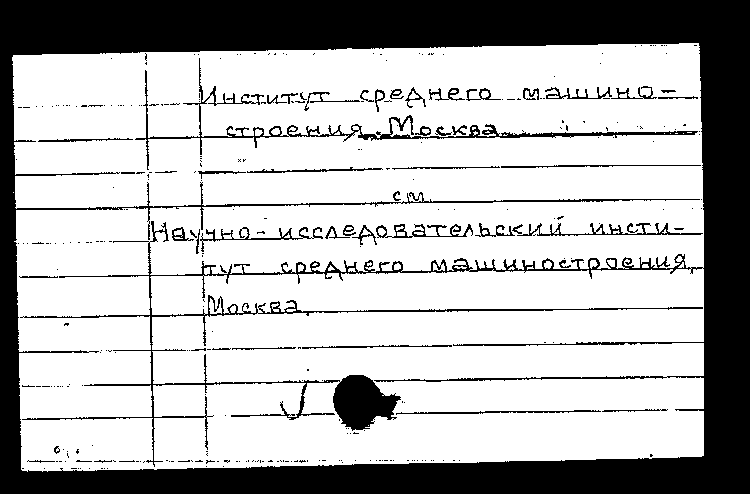 Институт среднего машино-
строения. Москва
см.
Научно-исследовательский инсти-
тут среднего машиностроения,
Москва.